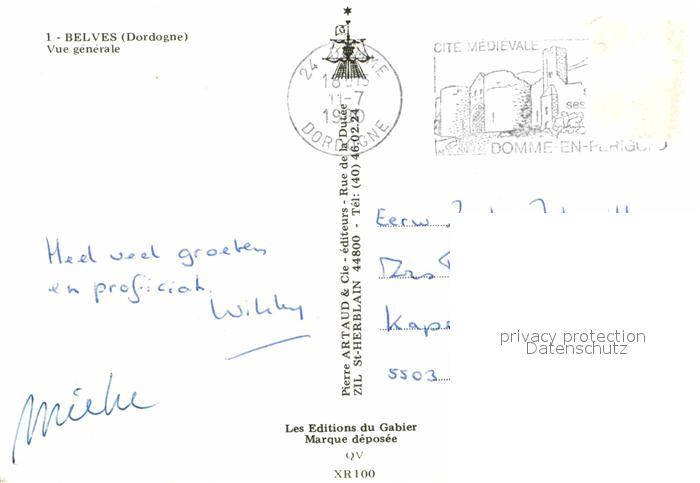 1 - BELVES (Dordogne)
Vue générale
24 DOMME
18
11-7
19
DORDOGNE
CITÉ MÉDIÉVALE
ses
DOMME-EN-PÉRIGORD
Pierre ARTAUD & Cie - éditeurs - Rue de la Dutée
ZIL St-HERBLAIN 44800 - Tél: (40) 46.02.24
Heel veel groeten
en proficiat.
Willy
Mieke
Eerw
Kape
5503
privacy protection
Datenschutz
Les Editions du Gabier
Marque déposée
QV
XR100